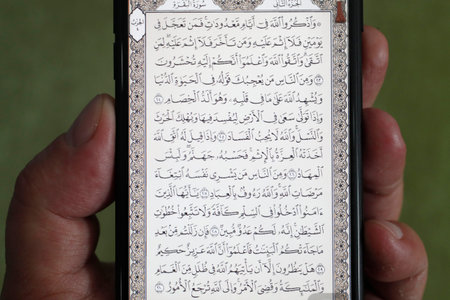 سُورَةُ البَقَرَةِ
الجُزءُ الثَّانِي
۞ وَاذْكُرُوا اللَّهَ فِي أَيَّامٍ مَعْدُودَاتٍ فَمَنْ تَعَجَّلَ فِي
يَوْمَيْنِ فَلَا إِثْمَ عَلَيْهِ وَمَنْ تَأَخَّرَ فَلَا إِثْمَ عَلَيْهِ لِمَنِ
اتَّقَىٰ وَاتَّقُوا اللَّهَ وَاعْلَمُوا أَنَّكُمْ إِلَيْهِ تُحْشَرُونَ
٢٠٣ وَمِنَ النَّاسِ مَنْ يُعْجِبُكَ قَوْلُهُ فِي الْحَيَاةِ الدُّنْيَا
وَيُشْهِدُ اللَّهَ عَلَىٰ مَا فِي قَلْبِهِ وَهُوَ أَلَدُّ الْخِصَامِ ٢٠٤
وَإِذَا تَوَلَّىٰ سَعَىٰ فِي الْأَرْضِ لِيُفْسِدَ فِيهَا وَيُهْلِكَ الْحَرْثَ
وَالنَّسْلَ وَاللَّهُ لَا يُحِبُّ الْفَسَادَ ٢٠٥ وَإِذَا قِيلَ لَهُ اتَّقِ اللَّهَ
أَخَذَتْهُ الْعِزَّةُ بِالْإِثْمِ فَحَسْبُهُ جَهَنَّمُ وَلَبِئْسَ
الْمِهَادُ ٢٠٦ وَمِنَ النَّاسِ مَنْ يَشْرِي نَفْسَهُ ابْتِغَاءَ
مَرْضَاتِ اللَّهِ وَاللَّهُ رَءُوفٌ بِالْعِبَادِ ٢٠٧ يَا أَيُّهَا الَّذِينَ
ءَامَنُوا ادْخُلُوا فِي السِّلْمِ كَافَّةً وَلَا تَتَّبِعُوا خُطُوَاتِ
الشَّيْطَانِ إِنَّهُ لَكُمْ عَدُوٌّ مُبِينٌ ٢٠٨ فَإِنْ زَلَلْتُمْ مِنْ بَعْدِ
مَا جَاءَتْكُمُ الْبَيِّنَاتُ فَاعْلَمُوا أَنَّ اللَّهَ عَزِيزٌ حَكِيمٌ
٢٠٩ هَلْ يَنْظُرُونَ إِلَّا أَنْ يَأْتِيَهُمُ اللَّهُ فِي ظُلَلٍ مِنَ الْغَمَامِ
وَالْمَلَائِكَةُ وَقُضِيَ الْأَمْرُ وَإِلَى اللَّهِ تُرْجَعُ الْأُمُورُ ٢١٠